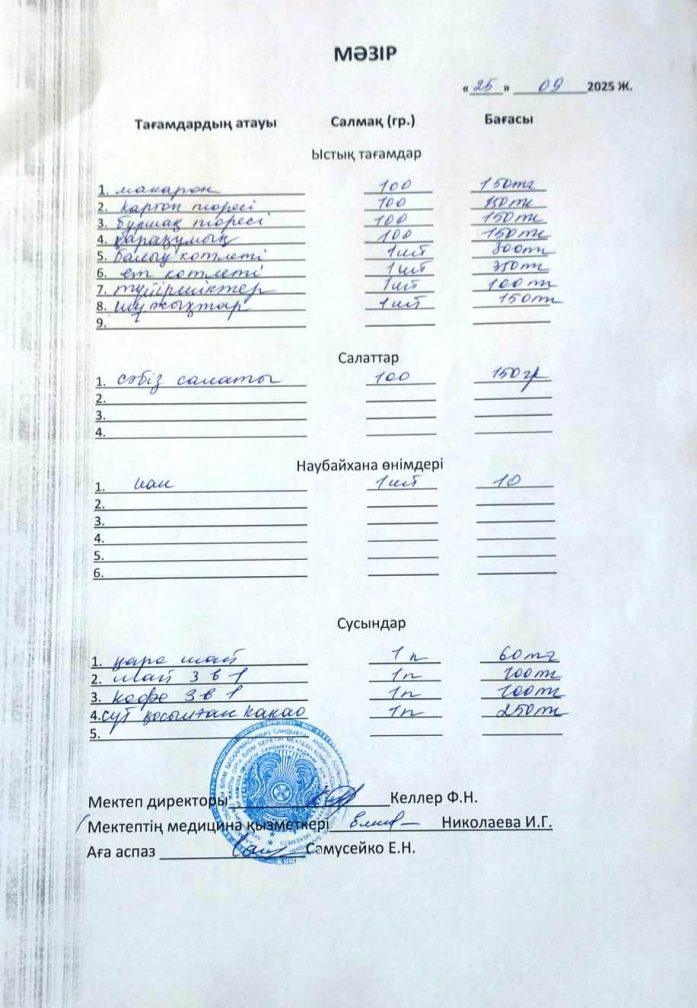 МӘЗІР
« 25 » 09 2025 Ж.
Тағамдардың атауы Салмақ (гр.) Бағасы
Ыстық тағамдар
1. макарон 100 150тг
2. картоп пюресі 100 150тг
3. бұршақ пюресі 100 150тг
4. қарақұмық 100 150тг
5. балық котлеті 1шт 300тг
6. ет котлеті 1шт 350тг
7. түйіршіктер 1шт 100тг
8. шұжықтар 1шт 150тг
9.
Салаттар
1. сәбіз салаты 100 150гр
2.
3.
4.
Наубайхана өнімдері
1. нан 1шт 10
2.
3.
4.
5.
6.
Сусындар
1. қара шай 1п 60тг
2. шай 3 в 1 1п 100тг
3. кофе 3 в 1 1п 100тг
4. сүт қосылған какао 1п 250тг
5.
Мектеп директоры Келлер Ф.Н.
Мектептің медицина қызметкері Николаева И.Г.
Аға аспаз Самусейко Е.Н.